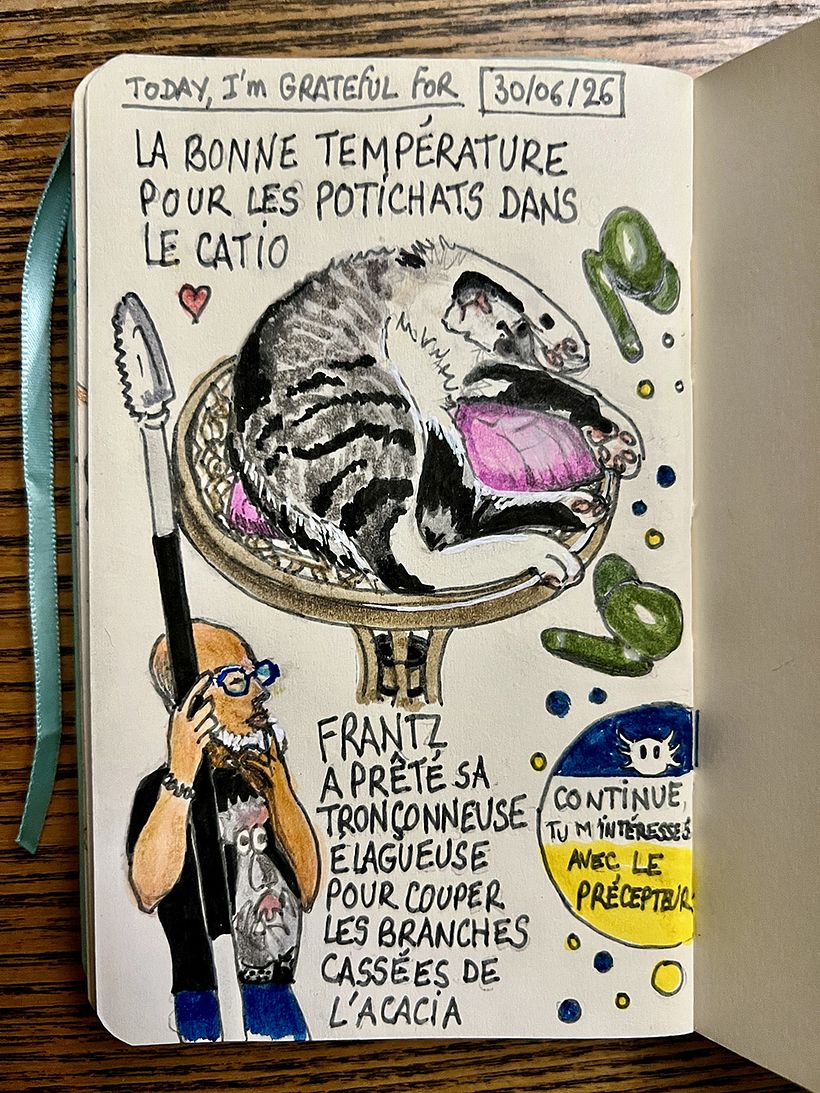 TODAY, I'm GRATEFUL FOR 30/06/26
LA BONNE TEMPÉRATURE
POUR LES POTICHATS DANS
LE CATIO
FRANTZ
A PRÊTÉ SA
TRONÇONNEUSE
ÉLAGUEUSE
POUR COUPER
LES BRANCHES
CASSÉES DE
L'ACACIA
CONTINUE,
TU M'INTÉRESSES
AVEC LE
PRÉCEPTEUR